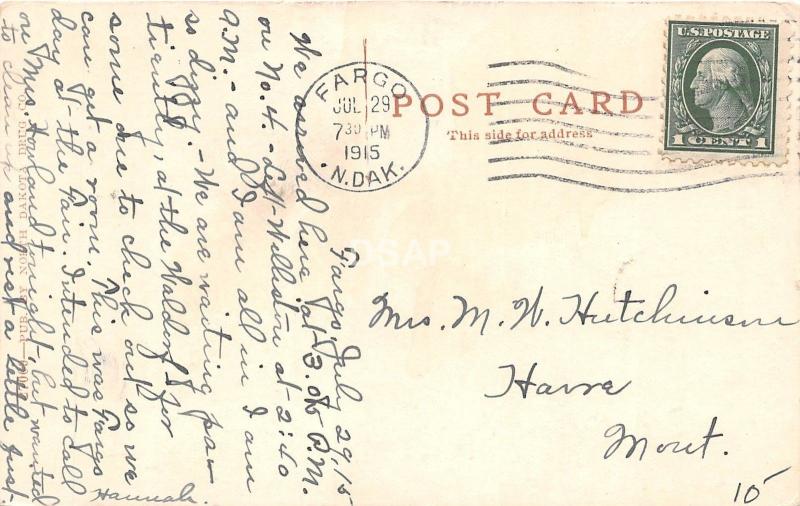 Fargo, July 29, 15
We arrived here at 3.05 P.M.
on No. 4. - Left Williston at 2:40
A.M. - and I am all in I am
so dizzy. - We are waiting pa-
tiently, at the Waldorf for
some due to check out so we
can get a room. This was Fargo
day at the Fair. Intended to call
on Mrs. Howland tonight, but wanted
to clean up and rest a little first.
Hannah.
PUB. BY NORTH DAKOTA DRUG CO.
FARGO
JUL 29
7 30 PM
1915
N. DAK.
POST CARD
This side for address
U.S. POSTAGE
1 CENT 1
DSAP
Mrs. M. W. Hutchinson
Havre
Mont.
10